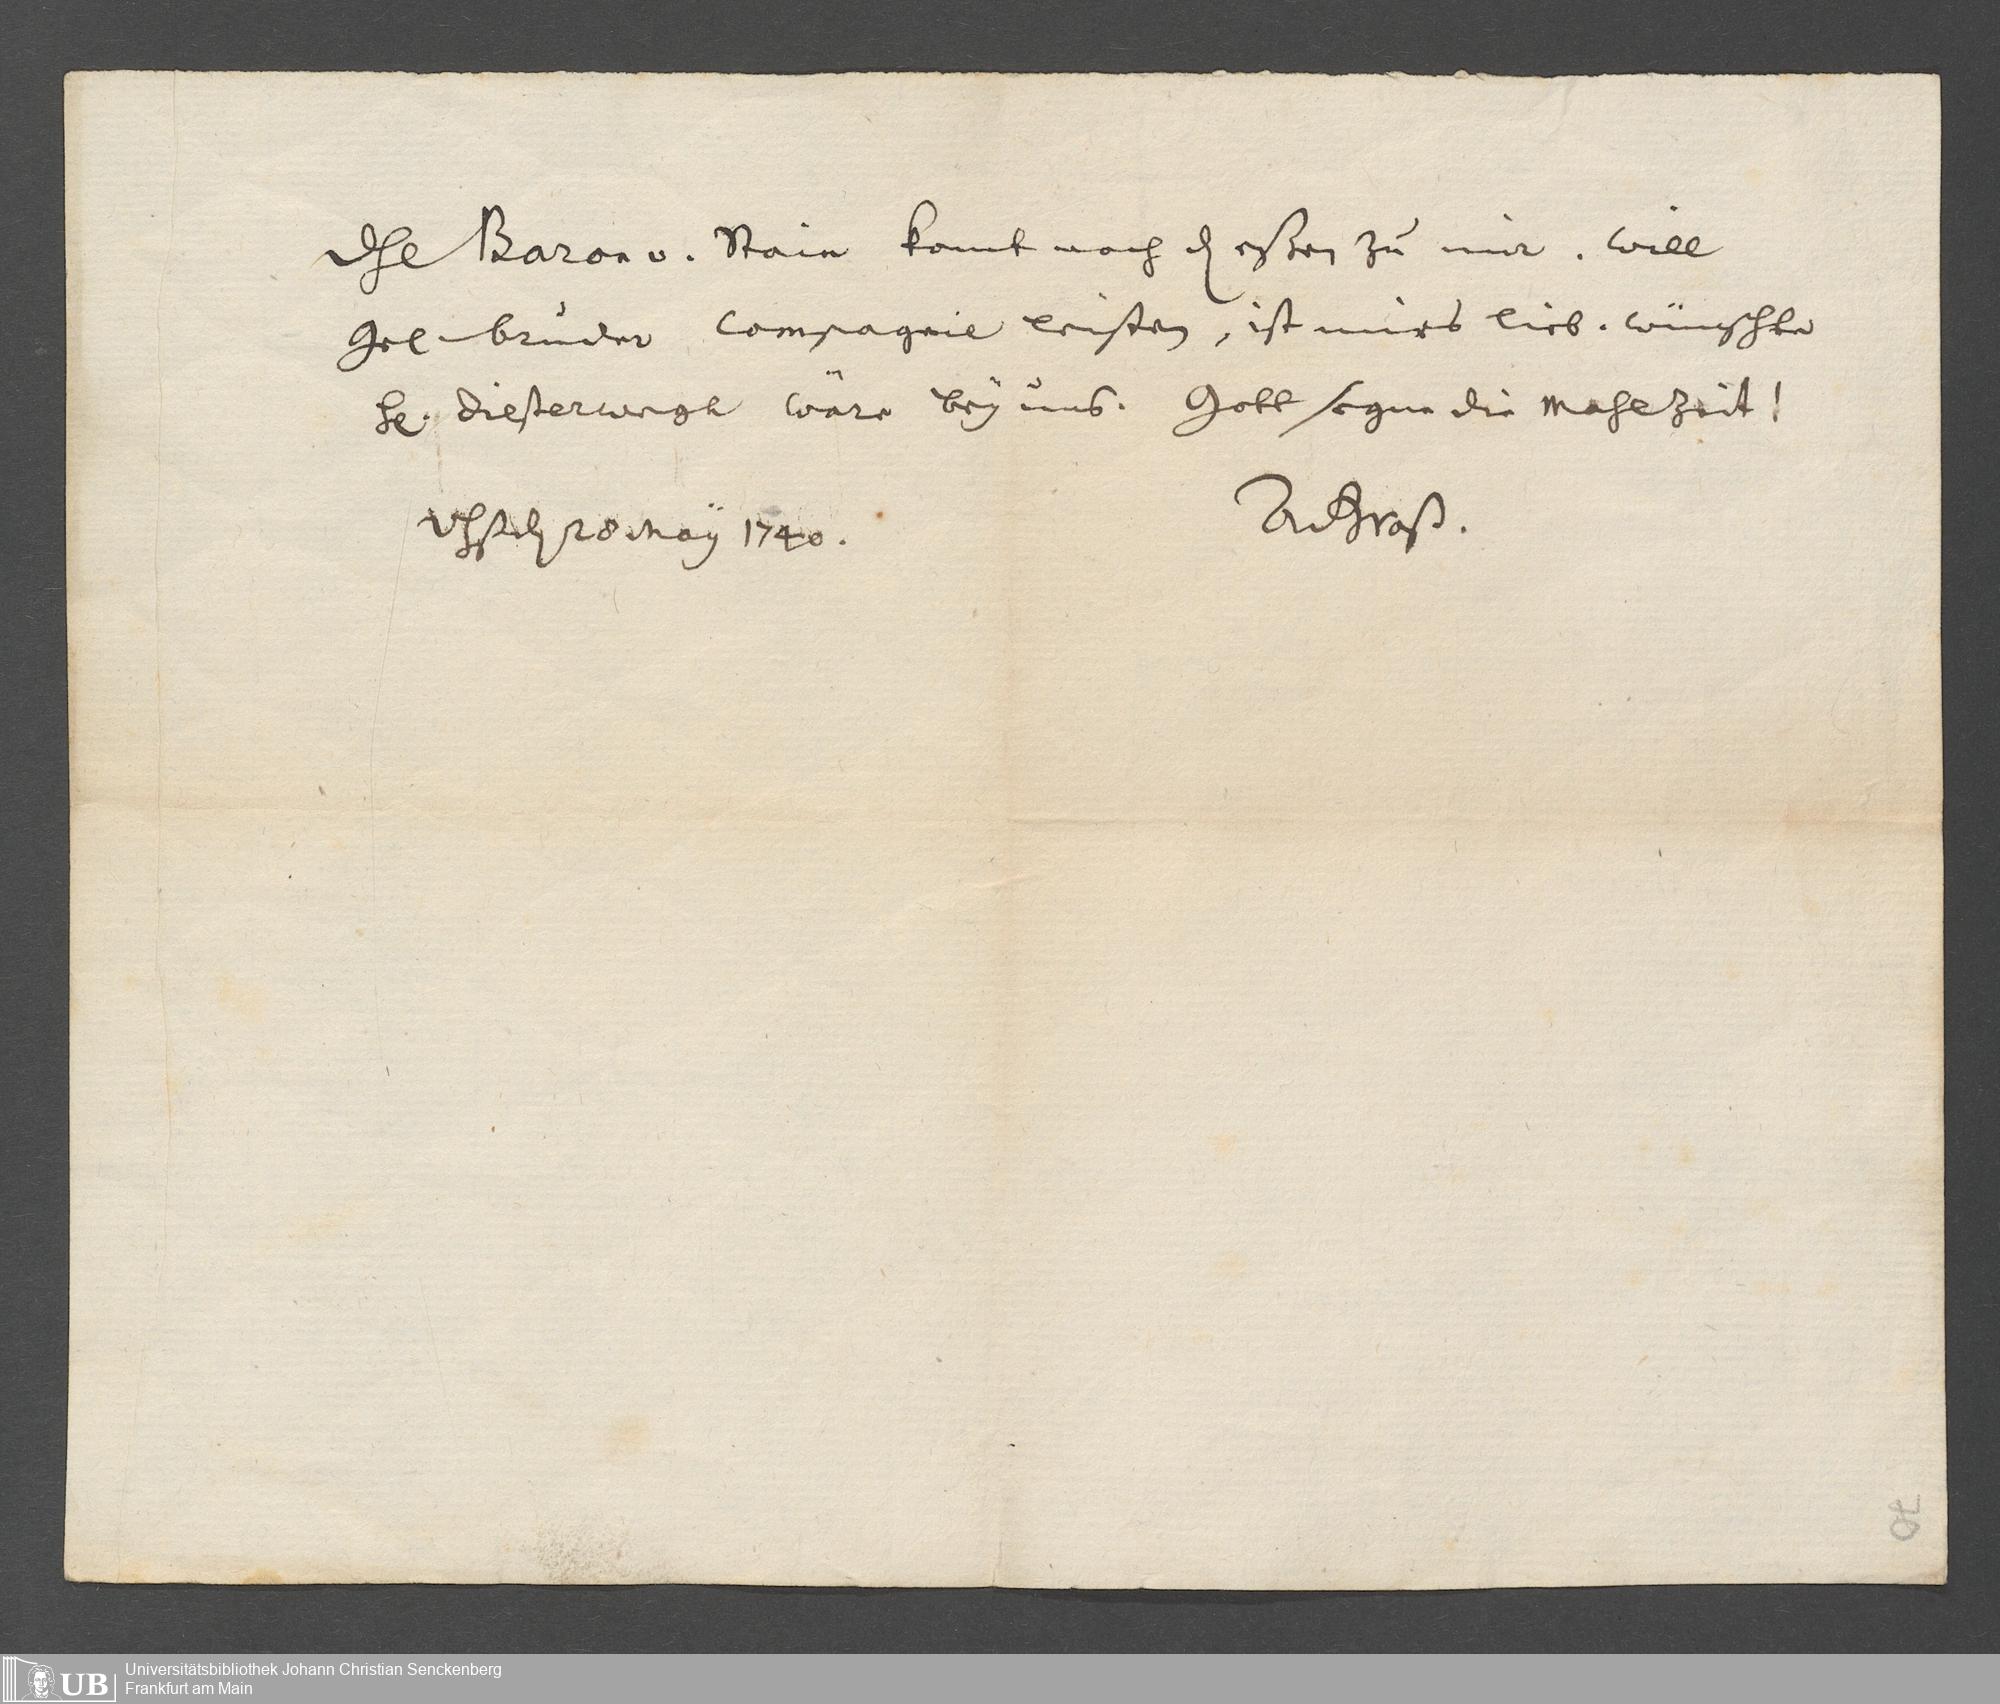 Baron v. Stain komt nach d eßen zu mir. will
gel. bruder Compagnie leisten, ist mirs lieb. wünschte
H. Diesterwegh wäre bey uns. Gott segne die Mahlzeit!
28 May 1740. Groß.
70
UB
Universitätsbibliothek Johann Christian Senckenberg
Frankfurt am Main